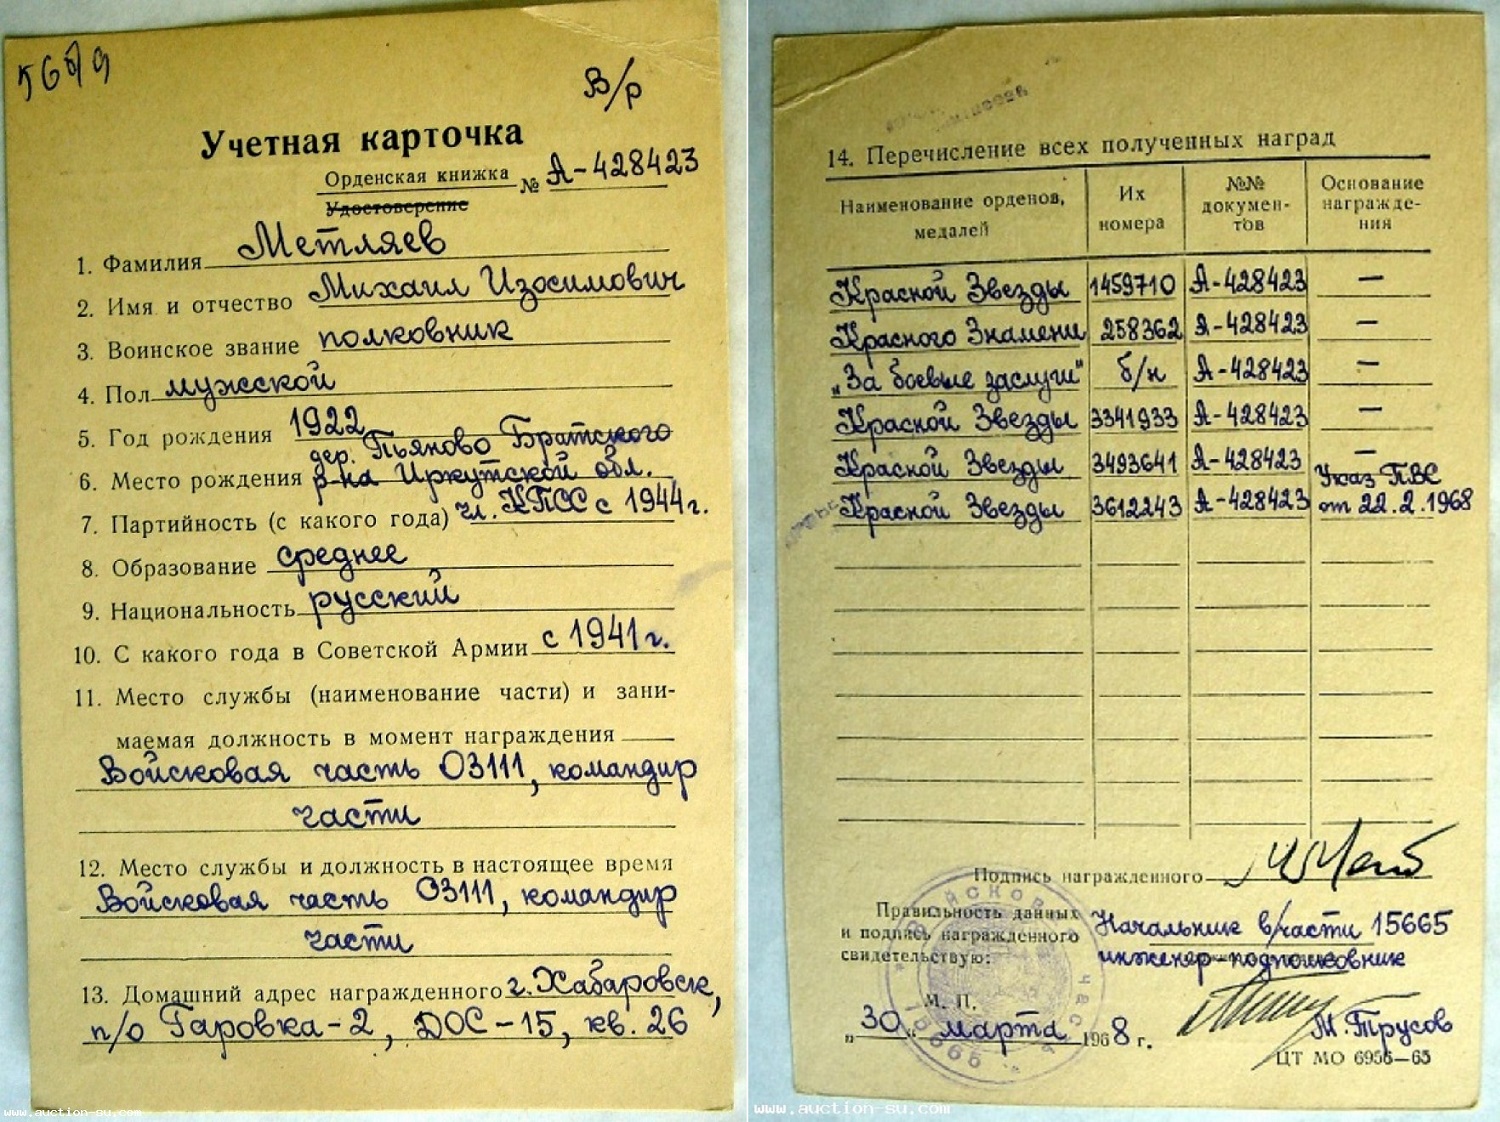 5669
В/р
Учетная карточка
Орденская книжка № А-428423
Удостоверение
1. Фамилия Метляев
2. Имя и отчество Михаил Изосимович
3. Воинское звание полковник
4. Пол мужской
5. Год рождения 1922
дер. Пьяново Братского
6. Место рождения р-на Иркутской обл.
7. Партийность (с какого года) чл. КПСС с 1944 г.
8. Образование среднее
9. Национальность русский
10. С какого года в Советской Армии с 1941 г.
11. Место службы (наименование части) и зани-
маемая должность в момент награждения
Войсковая часть 03111, командир
части
12. Место службы и должность в настоящее время
Войсковая часть 03111, командир
части
13. Домашний адрес награжденного г. Хабаровск,
п/о Гаровка-2, ДОС-15, кв. 26
www.auction-su.com
14. Перечисление всех полученных наград
Наименование орденов, медалей Их номера №№ докумен-тов Основание награжде-ния
Красной Звезды 1459710 А-428423 —
Красного Знамени 258362 А-428423 —
„За боевые заслуги" б/н А-428423 —
Красной Звезды 3341933 А-428423 —
Красной Звезды 3493641 А-428423 —
Красной Звезды 3612243 А-428423 Указ ПВС от 22.2.1968
Подпись награжденного
Правильность данных
и подпись награжденного
свидетельствую:
Начальник в/части 15665
инженер-подполковник
М. П.
М. Трусов
„30" марта 1968 г.
ЦТ МО 6956—65
www.auction-su.com